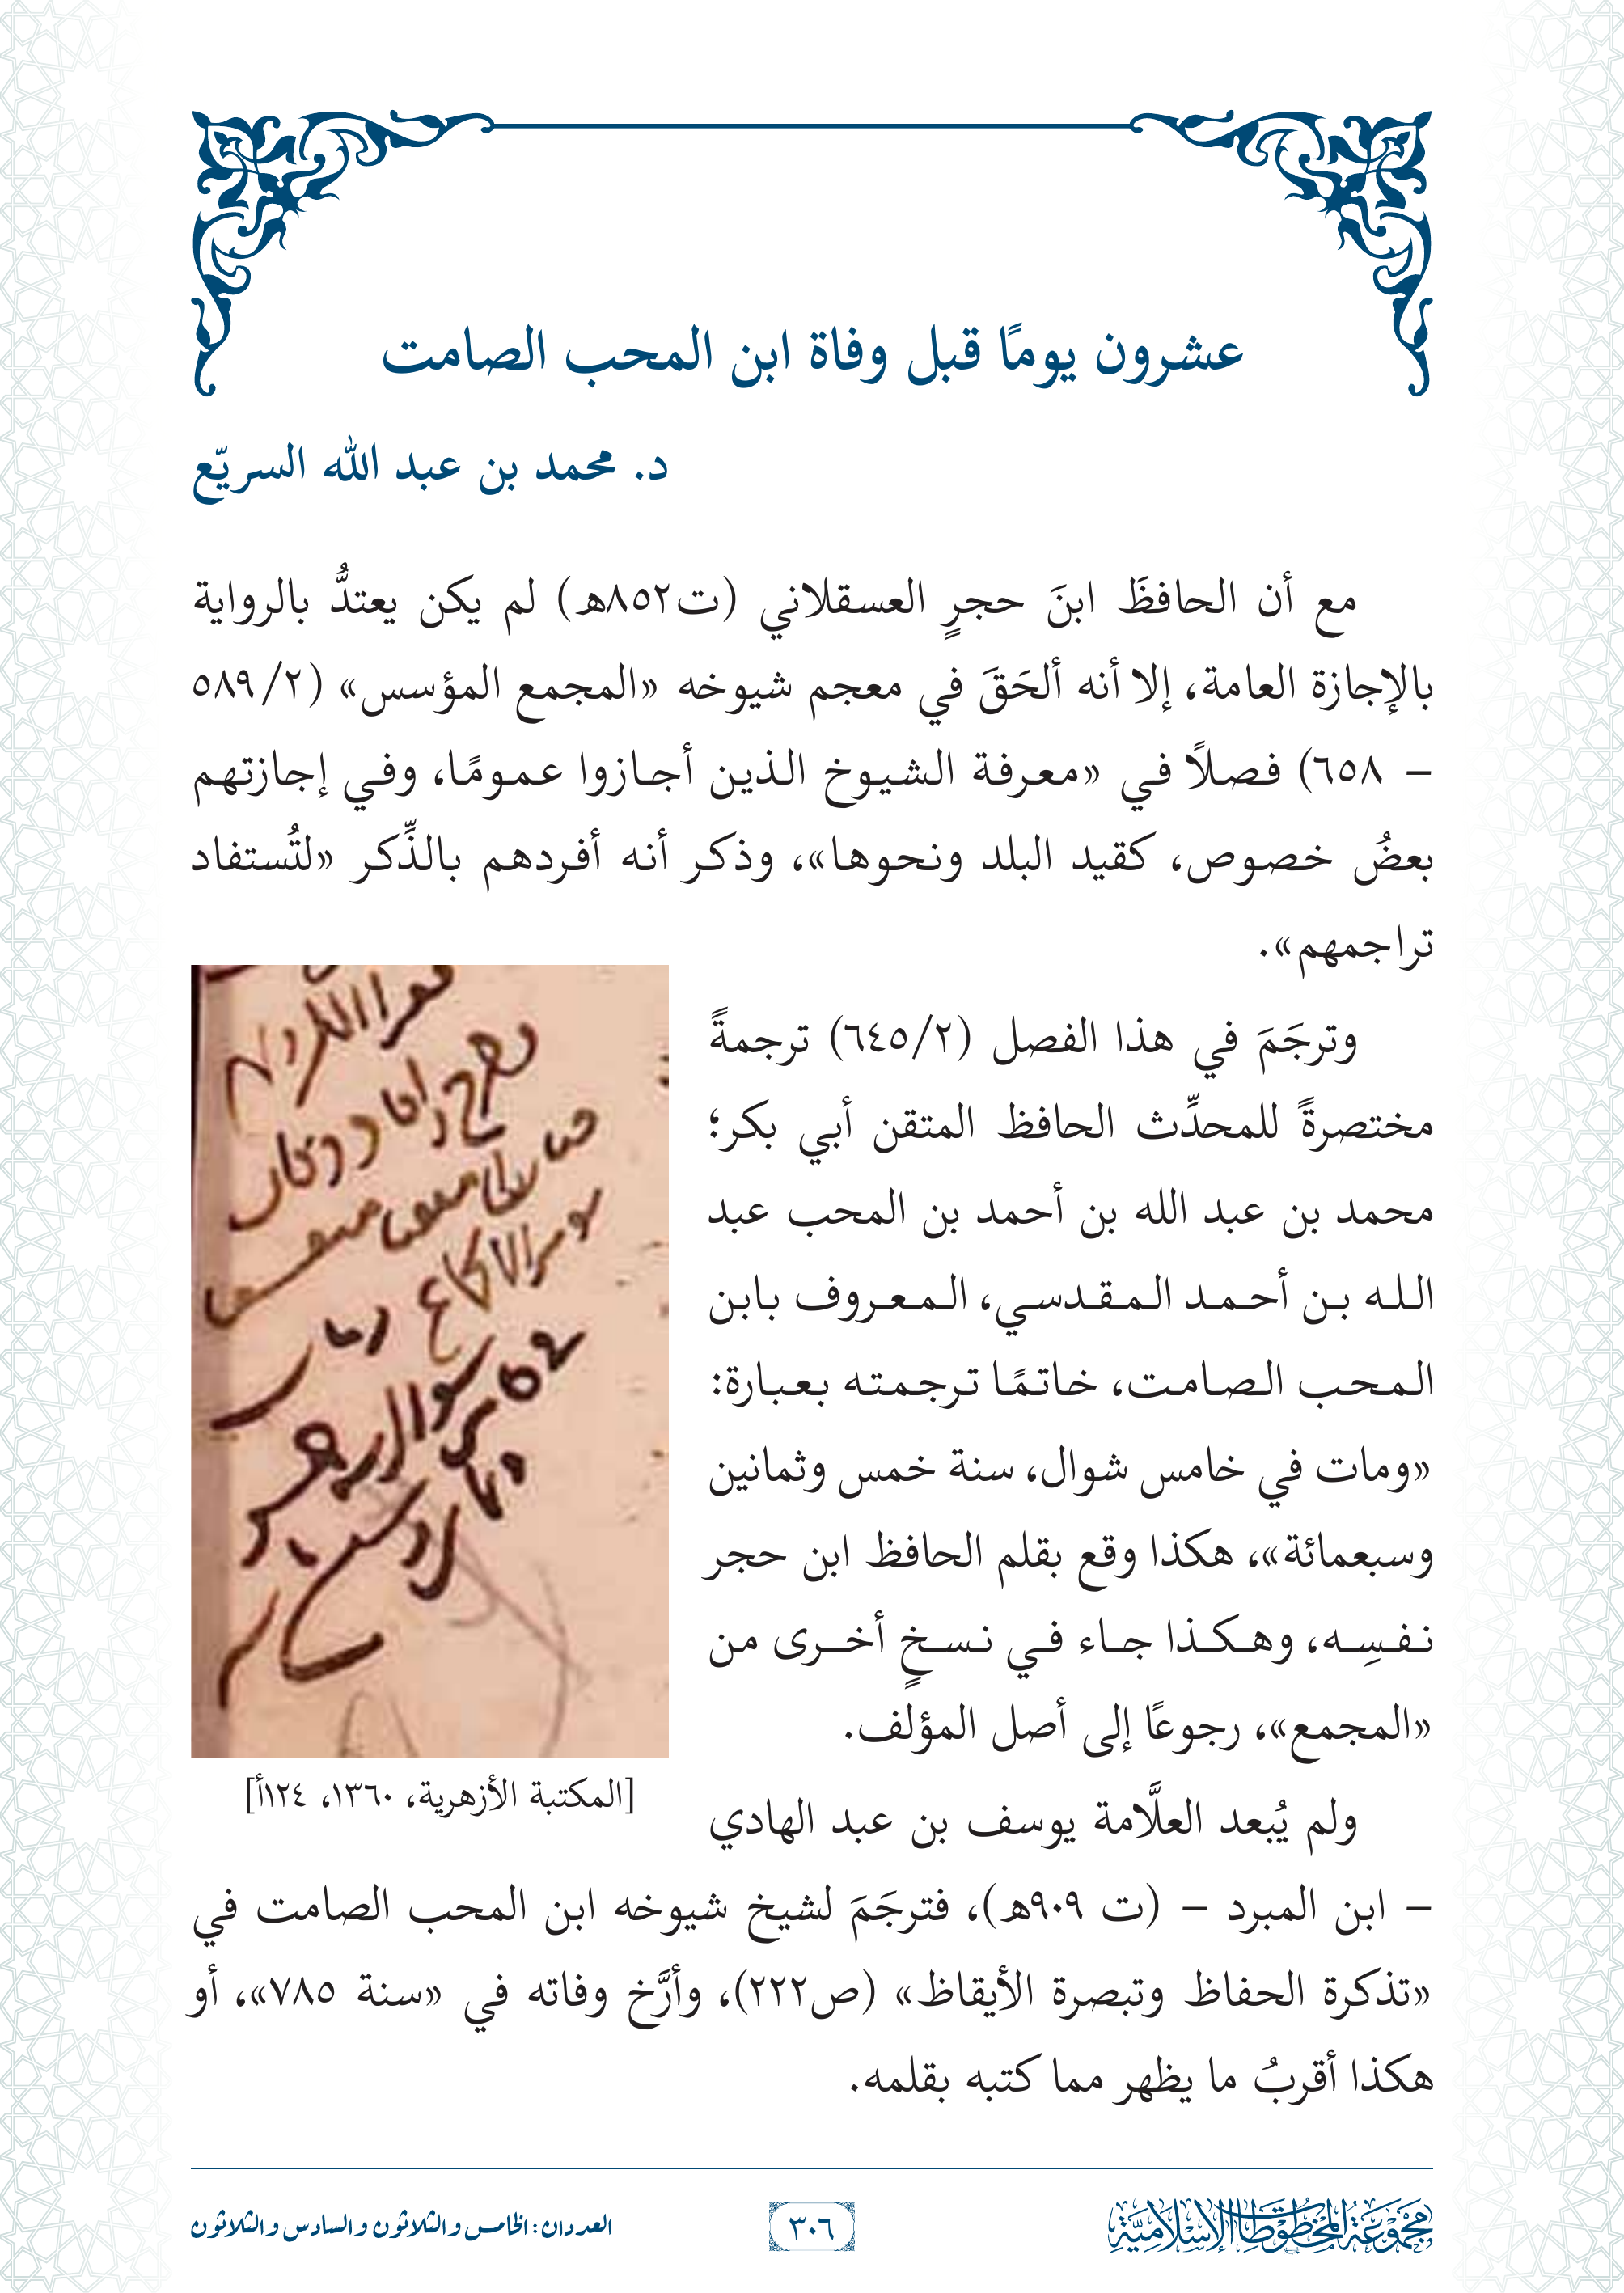 عشرون يومًا قبل وفاة ابن المحب الصامت
د. محمد بن عبد الله السريّع
مع أن الحافظَ ابنَ حجرٍ العسقلاني (ت٨٥٢هـ) لم يكن يعتدُّ بالرواية
بالإجازة العامة، إلا أنه ألحَقَ في معجم شيوخه «المجمع المؤسس» (٥٨٩/٢
– ٦٥٨) فصلًا في «معرفة الشيوخ الذين أجازوا عمومًا، وفي إجازتهم
بعضُ خصوص، كقيد البلد ونحوها»، وذكر أنه أفردهم بالذِّكر «لتُستفاد
تراجمهم».
وترجَمَ في هذا الفصل (٦٤٥/٢) ترجمةً
مختصرةً للمحدِّث الحافظ المتقن أبي بكر؛
محمد بن عبد الله بن أحمد بن المحب عبد
الله بن أحمد المقدسي، المعروف بابن
المحب الصامت، خاتمًا ترجمته بعبارة:
«ومات في خامس شوال، سنة خمس وثمانين
وسبعمائة»، هكذا وقع بقلم الحافظ ابن حجر
نفسِه، وهكذا جاء في نسخٍ أخرى من
«المجمع»، رجوعًا إلى أصل المؤلف.
[المكتبة الأزهرية، ١٣٦٠، ١٢٤أ]
ولم يُبعد العلَّامة يوسف بن عبد الهادي
– ابن المبرد – (ت ٩٠٩هـ)، فترجَمَ لشيخ شيوخه ابن المحب الصامت في
«تذكرة الحفاظ وتبصرة الأيقاظ» (ص٢٢٢)، وأرَّخ وفاته في «سنة ٧٨٥»، أو
هكذا أقربُ ما يظهر مما كتبه بقلمه.
مجموعة المخطوطات الإسلامية
٣٠٦
العددان: الخامس والثلاثون والسادس والثلاثون